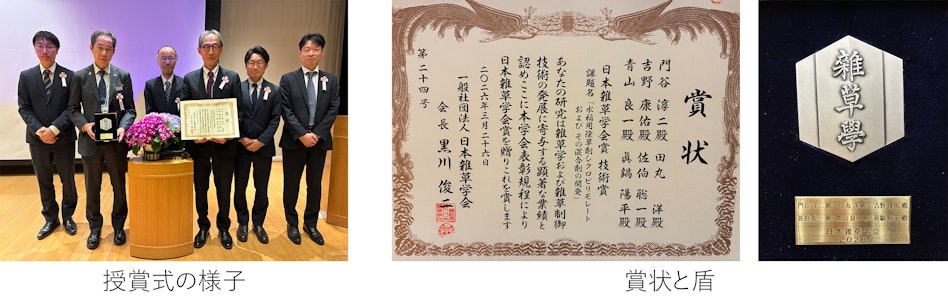 賞状
門谷淳二殿 田丸 洋殿
吉野康佑殿 佐伯聡一殿
青山良一殿 眞鍋陽平殿
日本雑草学会賞 技術賞
課題名「水稲用除草剤シクロピリモレート
およびその混合剤の開発」
あなたの研究は雑草学および雑草制御
技術の発展に寄与する顕著な業績と
認めここに本学会表彰規程により
日本雑草学会賞を贈りこれを賞します
二〇二六年三月二十六日
一般社団法人 日本雑草学会
会長 黒川俊二
第二十四号
雑草學
日本雑草学会
2026
授賞式の様子
賞状と盾